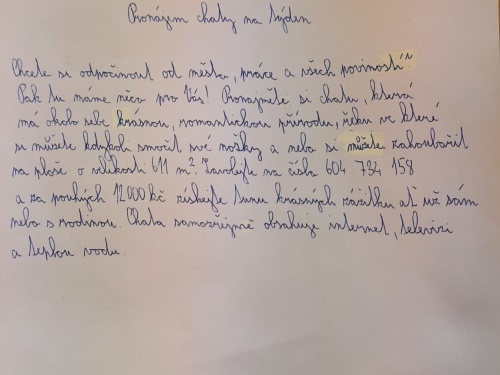 Pronájem chaty na týden
Chcete si odpočinout od města, práce a všech poviností"
Pak tu máme něco pro Vás! Pronajměte si chatu, která
má okolo sebe krásnou, romantickou přírodu, řeku ve které
si můžete kdykoli smočit své nožky a nebo si můžete zahoubařit
na ploše o velikosti 611 m². Zavolejte na číslo 604 734 158
a za pouhých 12000 kč získejte tunu krásných zážitku ať už sám
nebo s rodinou. Chata samozřejmě obsahuje internet, televizi
a teplou vodu.